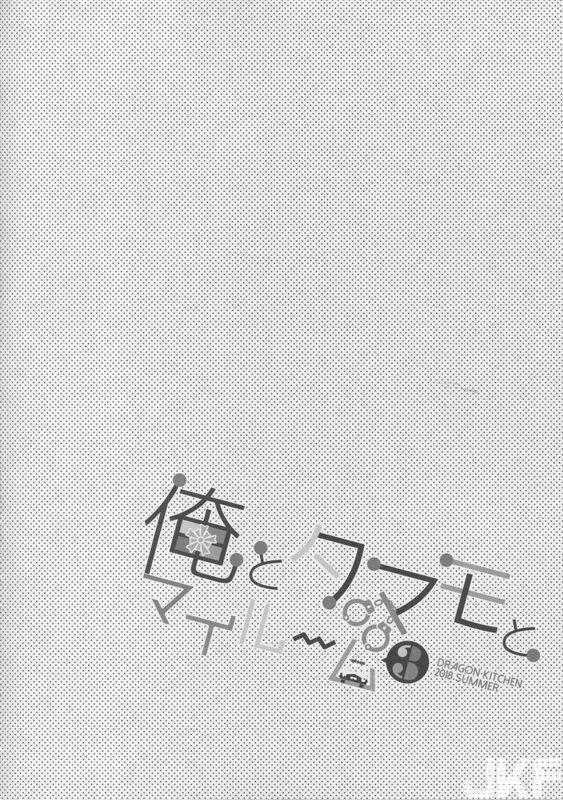 俺とタマモと
マイル〜ム 3
DRAGON-KITCHEN
2018 SUMMER
JKF